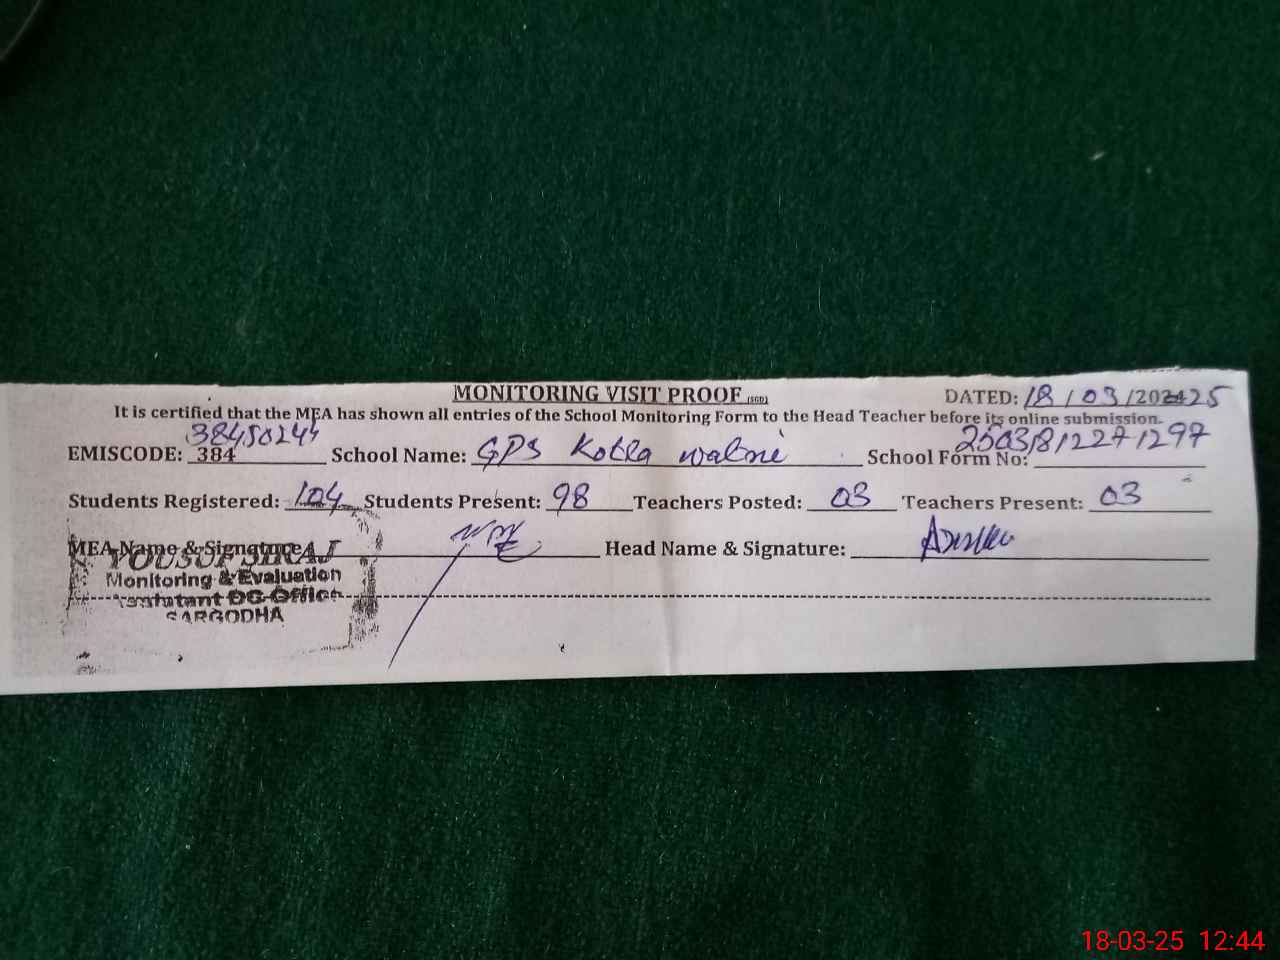 MONITORING VISIT PROOF (SGD) DATED: 18/03/202425
It is certified that the MEA has shown all entries of the School Monitoring Form to the Head Teacher before its online submission.
EMISCODE: 384 School Name: GPS Kotla School Form No:
Students Registered: 104 Students Present: 98 Teachers Posted: 03 Teachers Present: 03
MEA Name & Signature Head Name & Signature:
YOUSUF SIRAJ
Monitoring & Evaluation
Assistant DC Office
SARGODHA
18-03-25 12:44